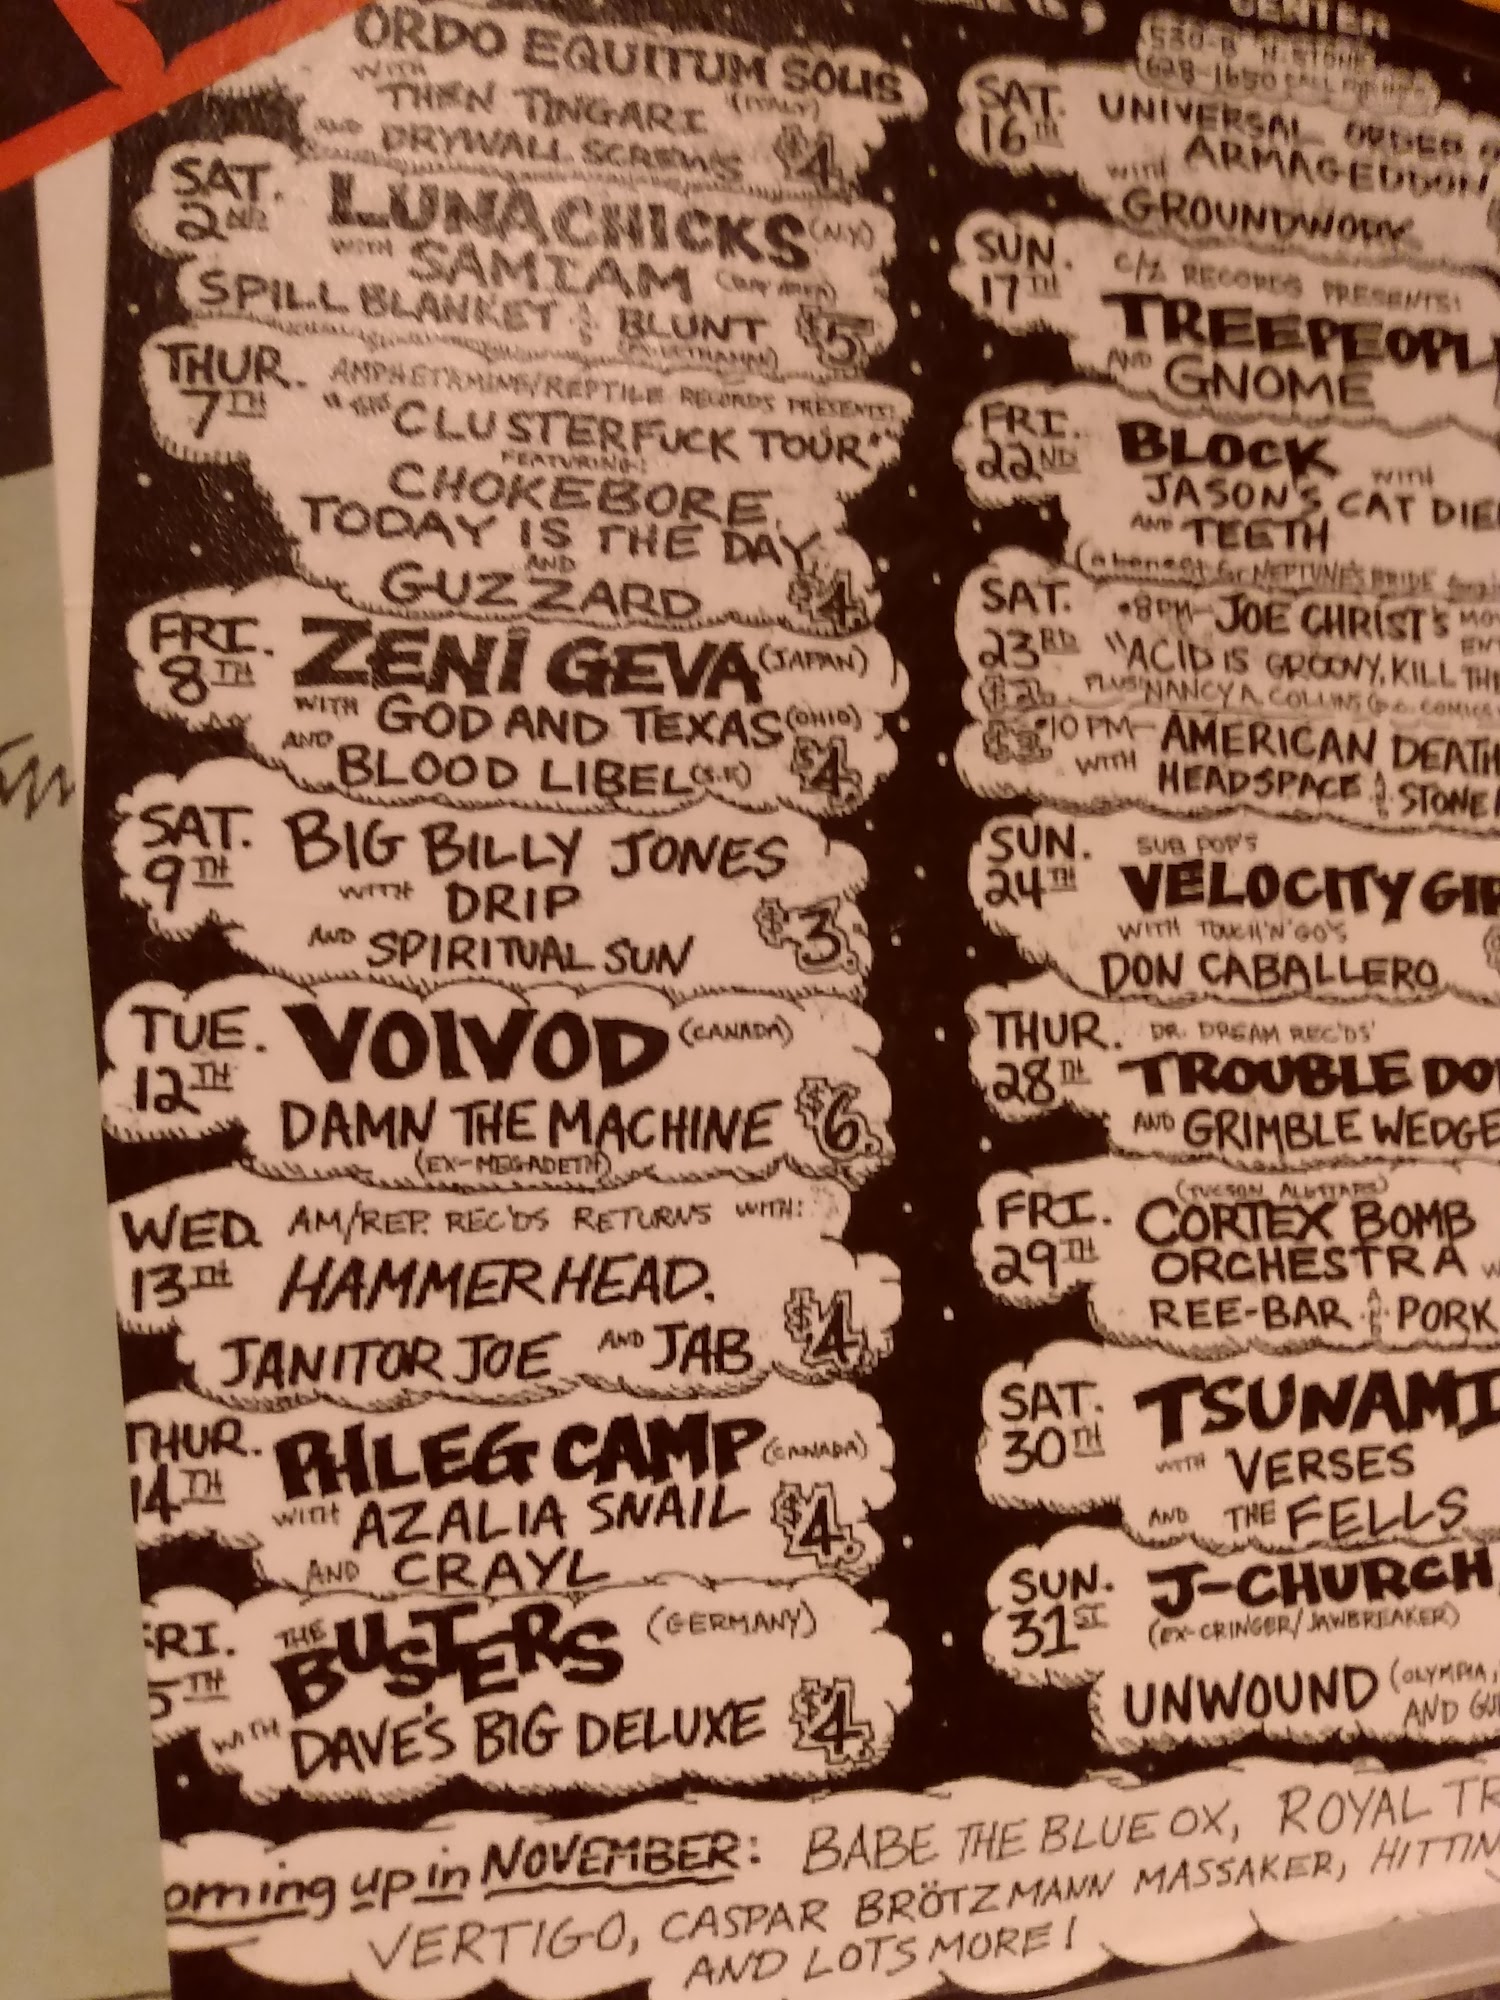 CENTER
530-B N. STONE
628-1650 CALL FOR INFO
ORDO EQUITUM SOLIS
WITH THEN TINGARI (ITALY)
AND DRYWALL SCREWS $4.
SAT. 2ND LUNACHICKS (N.Y.)
WITH SAMIAM (BAY AREA)
SPILL BLANKET AND BLUNT $5
THUR. 7TH AMPHETAMINE/REPTILE RECORDS PRESENTS:
"CLUSTERFUCK TOUR"
FEATURING:
CHOKEBORE,
TODAY IS THE DAY,
AND
GUZZARD $4.
FRI. 8TH ZENI GEVA (JAPAN)
WITH GOD AND TEXAS (OHIO)
AND BLOOD LIBEL (S.F.) $4.
SAT. 9TH BIG BILLY JONES
WITH DRIP
AND SPIRITUAL SUN $3.
TUE. 12TH VOIVOD (CANADA)
DAMN THE MACHINE $6.
(EX-MEGADETH)
WED. 13TH AM/REP. REC'DS RETURNS WITH:
HAMMERHEAD.
JANITOR JOE AND JAB $4.
THUR. 14TH PHLEG CAMP (CANADA)
WITH AZALIA SNAIL $4.
AND CRAYL
FRI. 5TH THE BUSTERS (GERMANY)
WITH DAVE'S BIG DELUXE $4.
SAT. 16TH UNIVERSAL ORDER
ARMAGEDDON
WITH GROUNDWORK
SUN. 17TH C/Z RECORDS PRESENTS:
TREEPEOPL
AND GNOME
FRI. 22ND BLOCK WITH
JASON'S CAT DIE
AND TEETH
(a benefit for NEPTUNE'S BRIDE
SAT. 23RD *8PM- JOE CHRIST'S
"ACID IS GROOVY, KILL THE
$2. PLUS NANCY A. COLLINS (D.C. COMICS
$3 *10PM- AMERICAN DEATH
WITH HEADSPACE AND STONE
SUN. 24TH SUB POP'S
VELOCITY GIR
WITH TOUCH'N'GO'S
DON CABALLERO
THUR. 28TH DR. DREAM REC'DS'
TROUBLE DO
AND GRIMBLE WEDGE
FRI. 29TH (TUCSON ALLSTARS)
CORTEX BOMB
ORCHESTRA W
REE-BAR AND PORK
SAT. 30TH TSUNAMI
WITH VERSES
AND THE FELLS
SUN. 31ST J-CHURCH
(EX-CRINGER/JAWBREAKER)
UNWOUND (OLYMPIA,
AND GU
oming up in NOVEMBER: BABE THE BLUE OX, ROYAL TR
VERTIGO, CASPAR BRÖTZMANN MASSAKER, HITTIN
AND LOTS MORE!